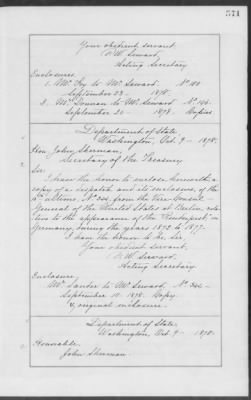 571
Your obedient servant,
F. W. Seward,
Acting Secretary
Enclosures.
1. Mr. Fry to Mr. Seward. No
September 23 - 1878.
2. Mr. to Mr. Seward. No
September 20 - 1878. Copies.
Department of State,
Washington, Oct. 9 - 1878.
Hon. John Sherman,
Secretary of the Treasury.
Sir:
I have the honor to enclose herewith a
copy of a despatch and its enclosure, of the
ultimo, No from the Vice-Consul-
General of the United States at Berlin, rela-
tive to the appearance of the Rinderpest, in
Germany, during the years 1872 to 1877.
I have the honor to be, Sir,
Your obedient servant,
F. W. Seward,
Acting Secretary.
Enclosure,
Mr. to Mr. Seward, No
September 1878. Copy
& original enclosure.
Department of State,
Washington, Oct. 9 - 1878.
Honorable
John Sherman